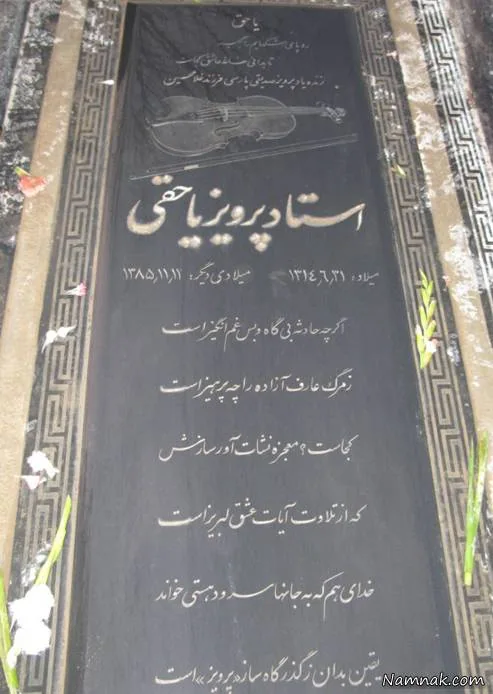 یا حق
زنده یاد پرویز صدیقی پارسی فرزند غلامحسین
استاد پرویز یاحقی
میلاد: ۱۳۱۴٫۶٫۳۱ میلادی دیگر: ۱۳۸۵٫۱۱٫۱۱
اگرچه حادثه بی گاه و بس غم انگیز است
ز مرگ عارف آزاده را چه پرهیز است
کجاست؟ معجزه نشات آور سازش
که از تلاوت آیات عشق لبریز است
خدای هم که به جانها سرود هستی خواند
یقین بدان ز گذرگاه ساز «پرویز» است
Namnak.com